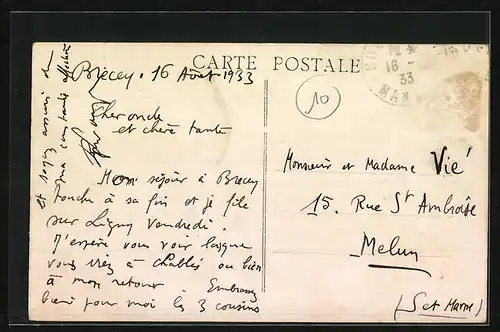 CARTE POSTALE
Brécey. 16 Août 1933
Cher oncle
et chère tante
Mon séjour à Brécey
touche à sa fin et je file
sur Ligny vendredi.
J'espère vous voir lorsque
vous irez à Chablis ou bien
à mon retour. Embrassez
bien pour moi les 3 cousins
et soyez assurés de
ma constante affection
10
16
33
Monsieur et Madame Vié
15. Rue St Ambroise
Melun
(S et Marne)